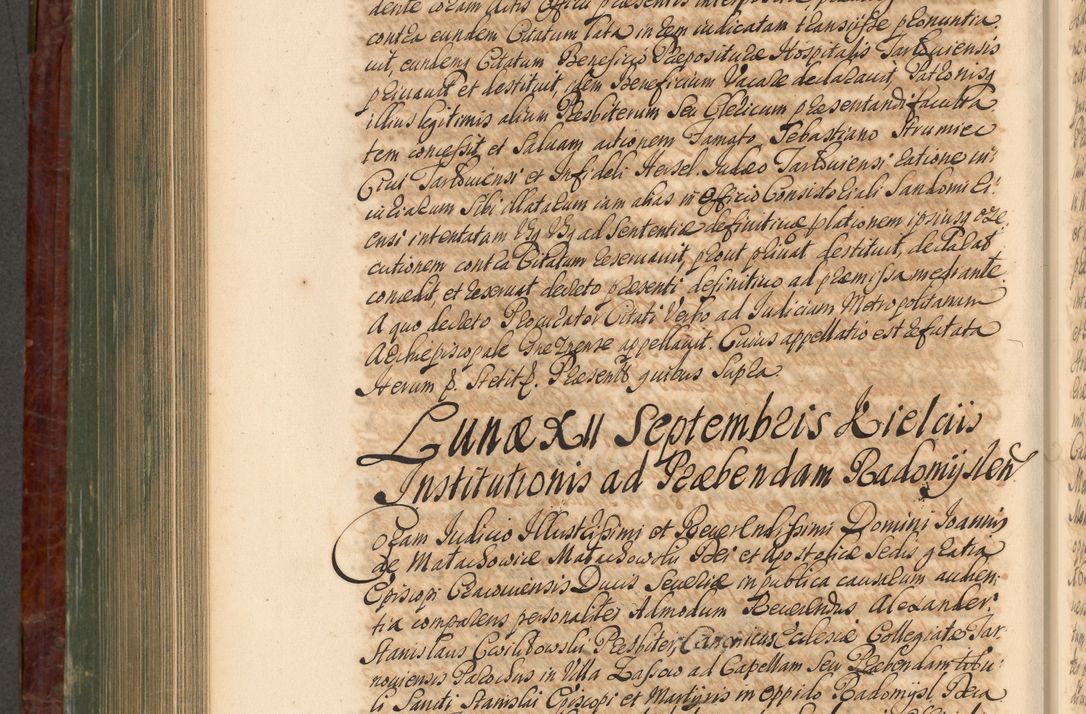 dente coram actis Officii præsentis interposita
contra eundem Citatum lata in rem iudicatam transijsse pronuntia
uit, eundemq Citatum Beneficio Præpositura Hospitalis Tarloviensis
priuauit et destituit, idem Beneficium Vacare declarauit, Patronisq
illius legitimis alium Præsbiterum seu Clericum præsentandi faculta
tem concessit et saluam actionem Famato Sebastiano Strumiec
Ciui Tarloviensi et Infideli Hersel Iudæo Tarloviensi ratione in:
iuriarum sibi illatarum iam alias in Officio Consistoriali Sandomiri:
ensi intentatam ad sententiæ definitiuæ prolationem ipsiusq exe
cutionem contra Citatum reseruauit, prout priuat destituit, declarat
concedit, et reseruat decreto præsenti definitiuo ad præmissa mediante.
A quo decreto Procurator Citati Verbo ad Iudicium Metropolitanum
Archiepiscopale Gneznense appellauit. Cuius appellatio est refutata
Iterum p. Stetit p. Præsentib quibus supra
Lunæ XII Septembris Kielciis
Institutionis ad Præbendam Radomyslen
Coram Iudicio Illustrissimi et Reuerendissimi Domini Ioannis
de Małachowice Małachowski Dei et Apostolicæ Sedis gratia
Episcopi Cracouiensis Ducis Seueriæ in publica causarum audien:
tia comparens personaliter Admodum Reuerendus Alexander
Stanislaus Præsbiter, Canonicus Ecclesiæ Collegiatæ Tar:
noviensis Parochus in Villa Łassow ad Capellam seu Præbendam titu:
li Sancti Stanislai Episcopi et Martyris in oppido Radomysl